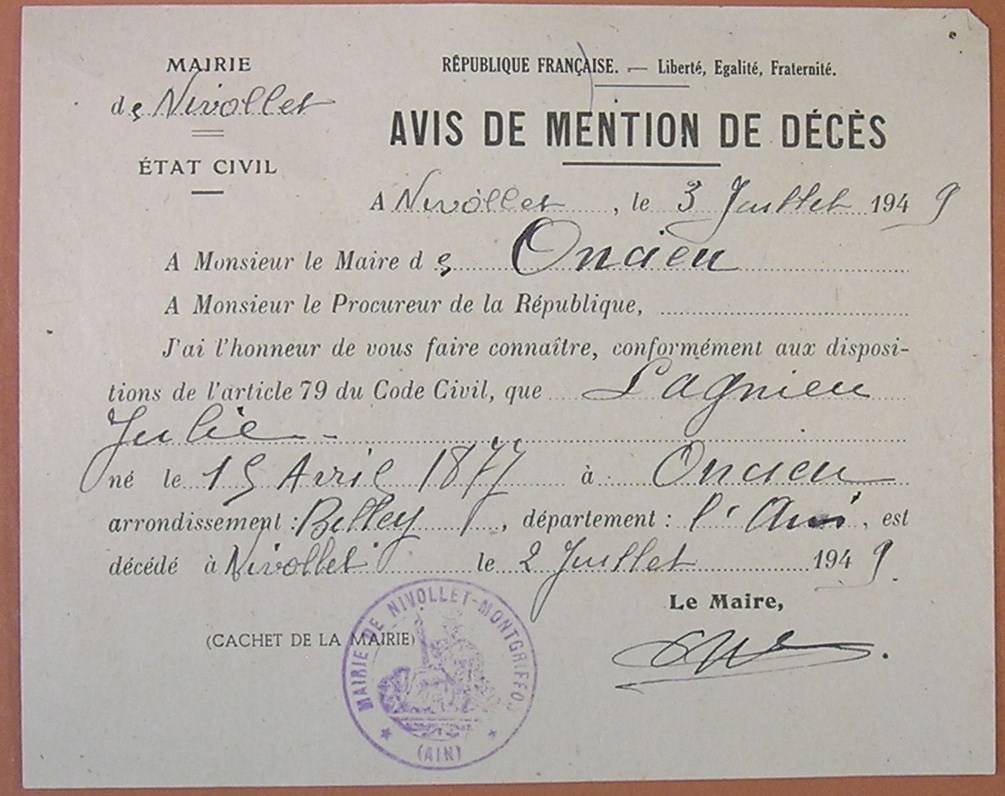 MAIRIE
de Nivollet
ÉTAT CIVIL
RÉPUBLIQUE FRANÇAISE. — Liberté, Egalité, Fraternité.
AVIS DE MENTION DE DÉCÈS
A Nivollet, le 3 Juillet 1949
A Monsieur le Maire de Oncieu
A Monsieur le Procureur de la République,
J'ai l'honneur de vous faire connaître, conformément aux disposi-
tions de l'article 79 du Code Civil, que Lagnieu
Julie
né le 15 Avril 1877 à Oncieu
arrondissement : Belley, département : l'Ain, est
décédé à Nivollet le 2 Juillet 1949.
Le Maire,
(CACHET DE LA MAIRIE)
MAIRIE DE NIVOLLET-MONTGRIFFON
(AIN)